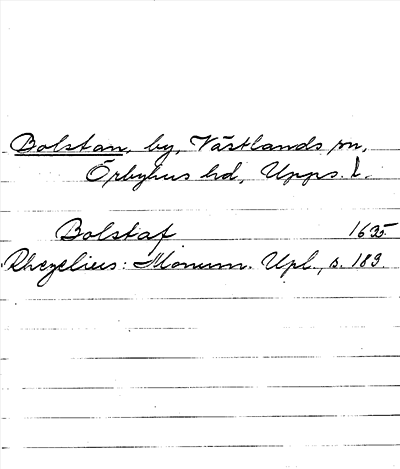 Bolstan, by, Västlands sn,
Örbyhus hd, Upps. l.
Bolstaf 1635
Rhezelius: Monum. Upl., s. 183.